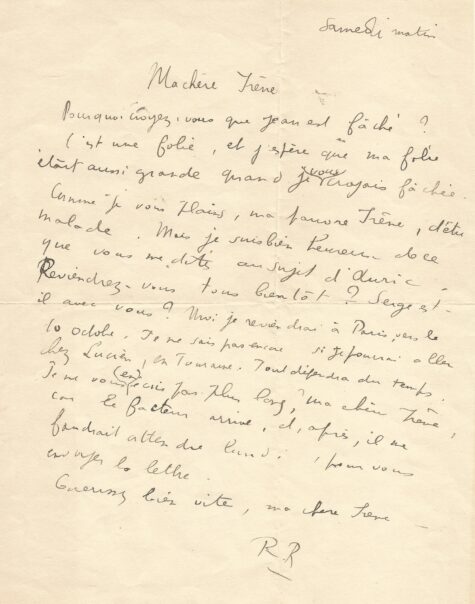 Samedi matin
Ma chère Irène
Pourquoi croyez-vous que Jean est fâché ?
C'est une folie, et j'espère que ma folie
était aussi grande quand je vous croyais fâchée.
Comme je vous plains, ma pauvre Irène, d'être
malade. Mais je suis bien heureux de ce
que vous me dites au sujet d'Auric.
Reviendrez-vous tous bientôt ? Serge est-
il avec vous ? Moi je reviendrai à Paris vers le
10 octobre. Je ne sais pas encore si je pourrai aller
chez Lucien, en Touraine. Tout dépendra du temps.
Je ne vous (en) écris pas plus long, ma chère Irène,
car le facteur arrive, et, après, il me
faudrait attendre lundi pour vous
envoyer la lettre.
Guérissez bien vite, ma chère Irène
RR